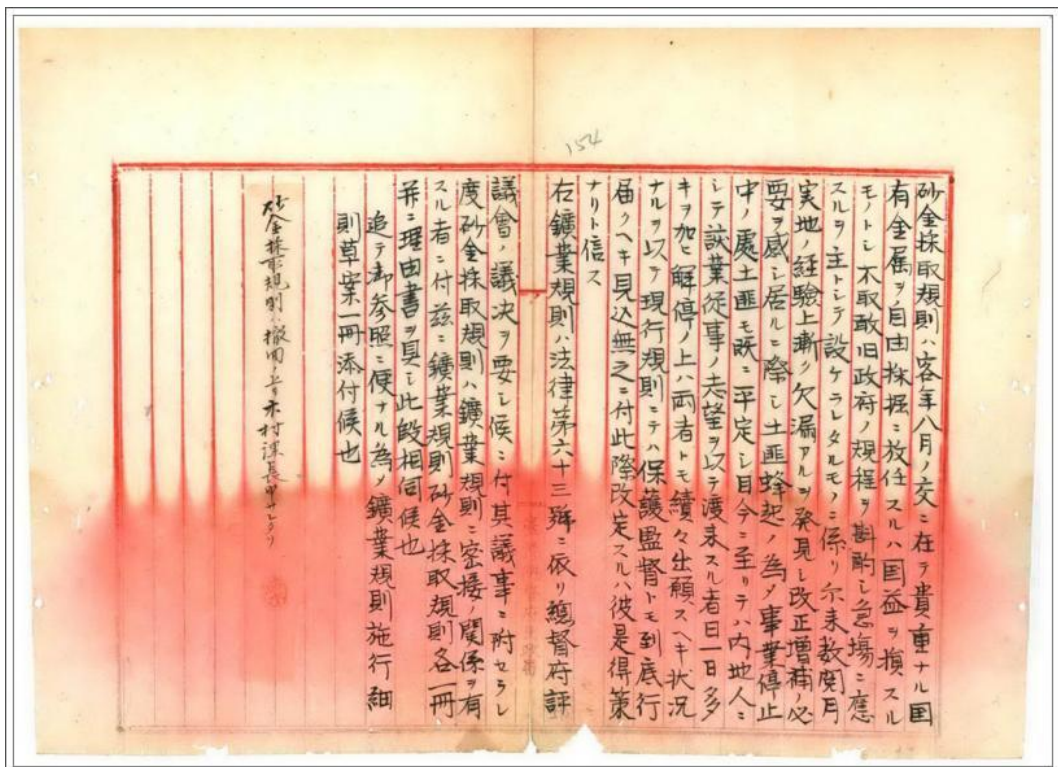 154
砂金採取規則ハ客年八月ノ交ニ在テ貴重ナル国
有金属ヲ自由採掘ニ放任スルハ国益ヲ損スル
モノトシ不取敢旧政府ノ規程ヲ斟酌シ急場ニ應
スルヲ主トシテ設ケラレタルモノニ係リ尓来数閲月
実地ノ経験上漸ク欠漏アルヲ発見シ改正増補ノ必
要ヲ感シ居ルニ際シ土匪蜂起ノ為メ事業停止
中ノ處土匪モ既ニ平定シ目今ニ至リテハ内地人ニ
シテ該業従事ノ志望ヲ以テ渡来スル者日一日多
キヲ加ヒ解停ノ上ハ両者トモ續々出願スヘキ状況
ナルヲ以テ現行規則ニテハ保護監督トモ到底行
届クヘキ見込無之ニ付此際改定スルハ彼是得策
ナリト信ス
右鑛業規則ハ法律第六十三号ニ依リ總督府評
議會ノ議决ヲ要シ候ニ付其議事ニ附セラレ
度砂金採取規則ハ鑛業規則ニ密接ノ関係ヲ有
スル者ニ付茲ニ鑛業規則砂金採取規則各一冊
并ニ理由書ヲ具シ此段相伺候也
追テ御参照ニ便ナル為メ鑛業規則施行細
則草案一冊添付候也
砂金採取規則ハ撤回ノ上木村課長